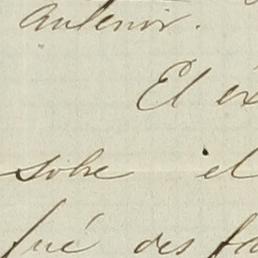 anterior.
El ex
sobre el
fué des fa